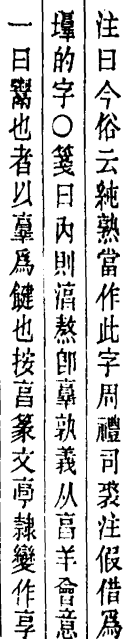 注曰今俗云純熟當作此字周禮司裘注假借爲
埻的字○箋曰內則淯熬卽𦎫孰義从亯羊會意
一曰鬻也者以𦎫爲鍵也按亯篆文亭隸變作享